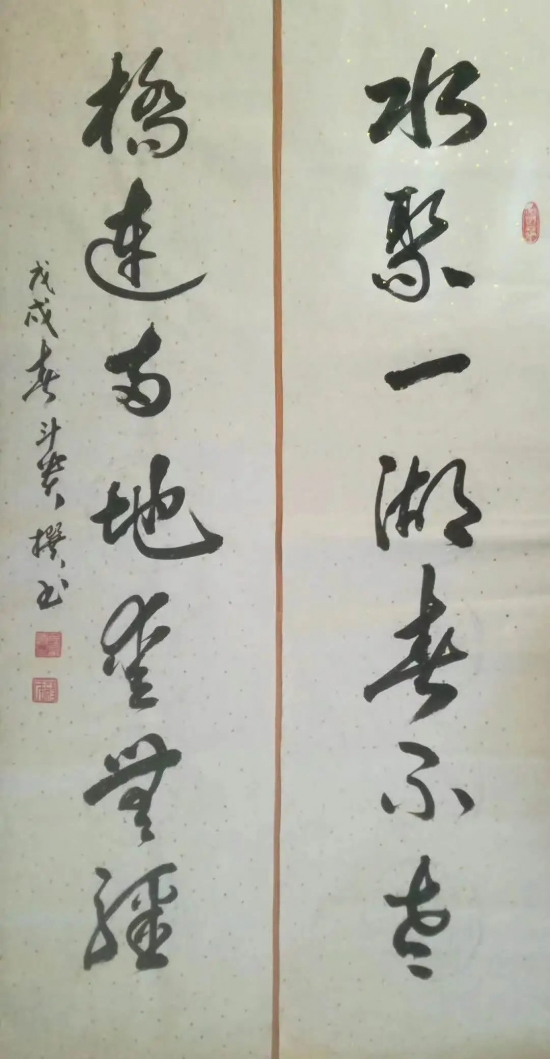 水聚一湖春不老
橋連兩地愛無疆
戊戌春斗撰书